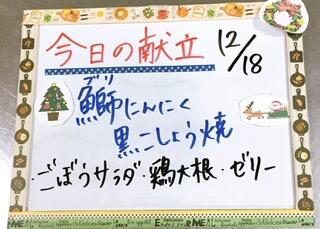 今日の献立 12/18
ブリ
鰤にんにく
黒こしょう焼
・ごぼうサラダ・鶏大根・ゼリー